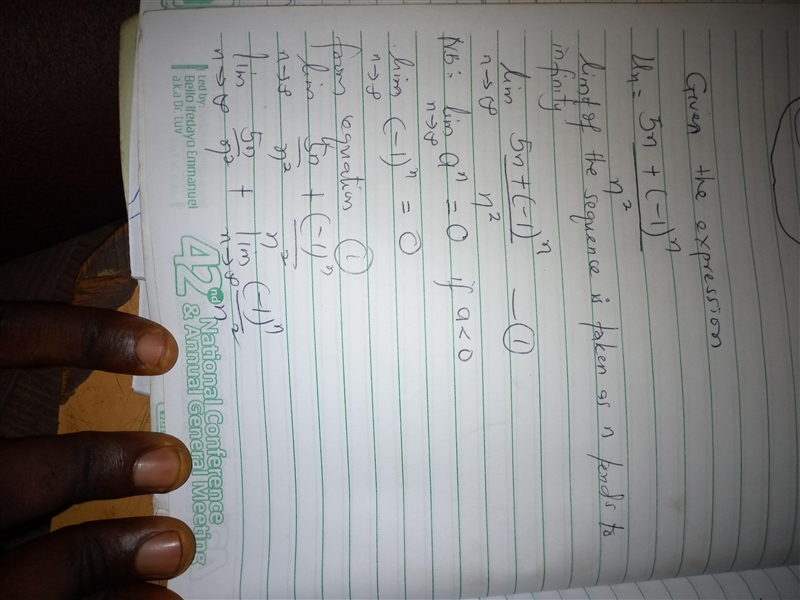 Given the expression
Un = 5n + (-1)^n
n^2
limt of the sequence is taken as n tends to
infinity
lim 5n + (-1)^n — ①
n→∞ n^2
NB: lim a^n = 0 if a<0
n→∞
lim (-1)^n = 0
n→∞
from equation ①
lim 5n + (-1)^n
n→∞ n^2 n^2
lim 5n + lim (-1)^n
n→∞ n^2 n→∞ n^2
Led by:
Bello Iredayo Emmanuel
a.k.a Dr LUV
42nd National Conference
& Annual General Meeting